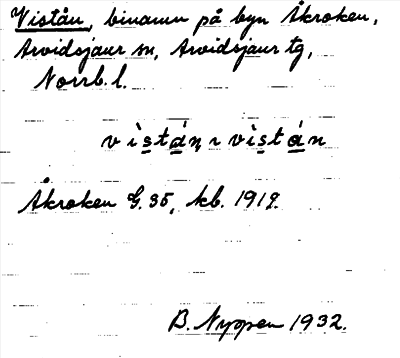 Vistån, binamn på byn Åkroken,
Arvidsjaur sn, Arvidsjaur tg,
Norrb. l.
v ì s t á n ~ v ì s t á n
Åkroken G. 35, kb. 1919.
B. Nyppen 1932.